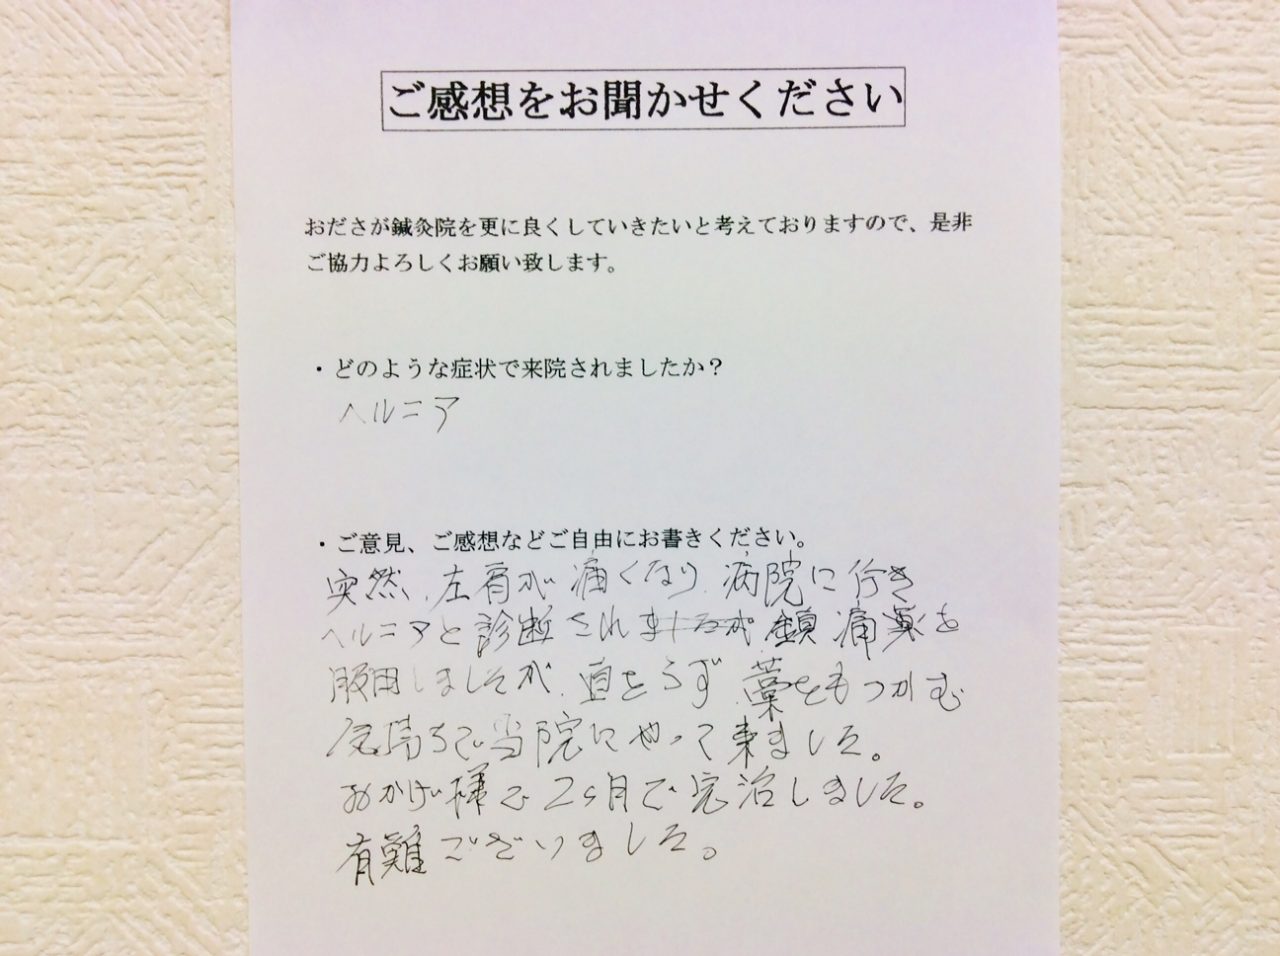 ご感想をお聞かせください
おださが鍼灸院を更に良くしていきたいと考えておりますので、是非
ご協力よろしくお願い致します。
・どのような症状で来院されましたか？
ヘルニア
・ご意見、ご感想などご自由にお書きください。
突然、左肩が痛くなり、病院に行き
ヘルニアと診断されましたが、鎮痛薬を
服用しましたが、直をらず、藁をもつかむ
気持ちで当院にやって来ました。
おかげ様で2ヶ月で完治しました。
有難ございました。